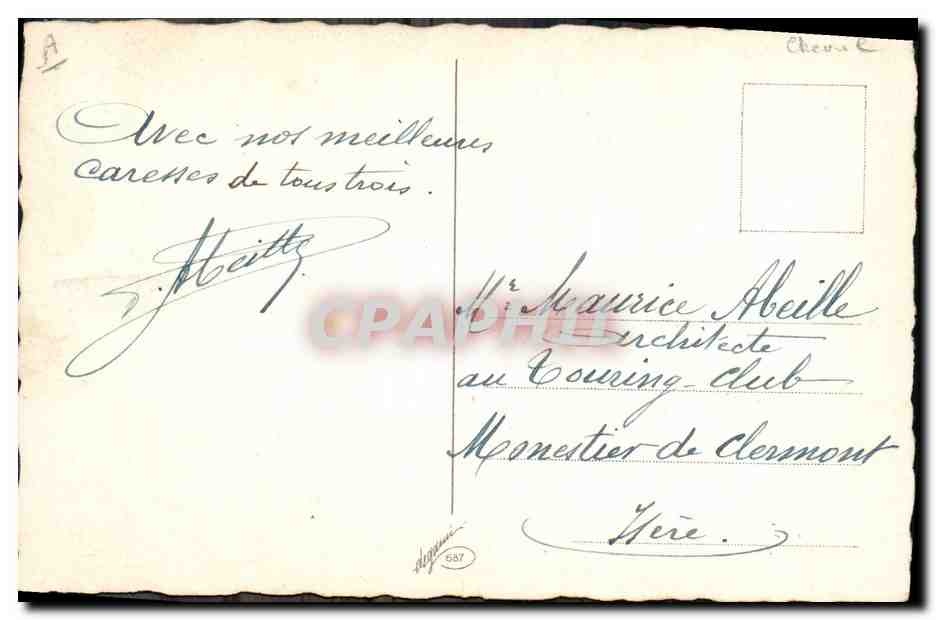 A
Cheval
Avec nos meilleures
caresses de tous trois.
CPAPHIL
Mr Maurice Abeille
architecte
au Touring-club
Monestier de Clermont
Isère.
687